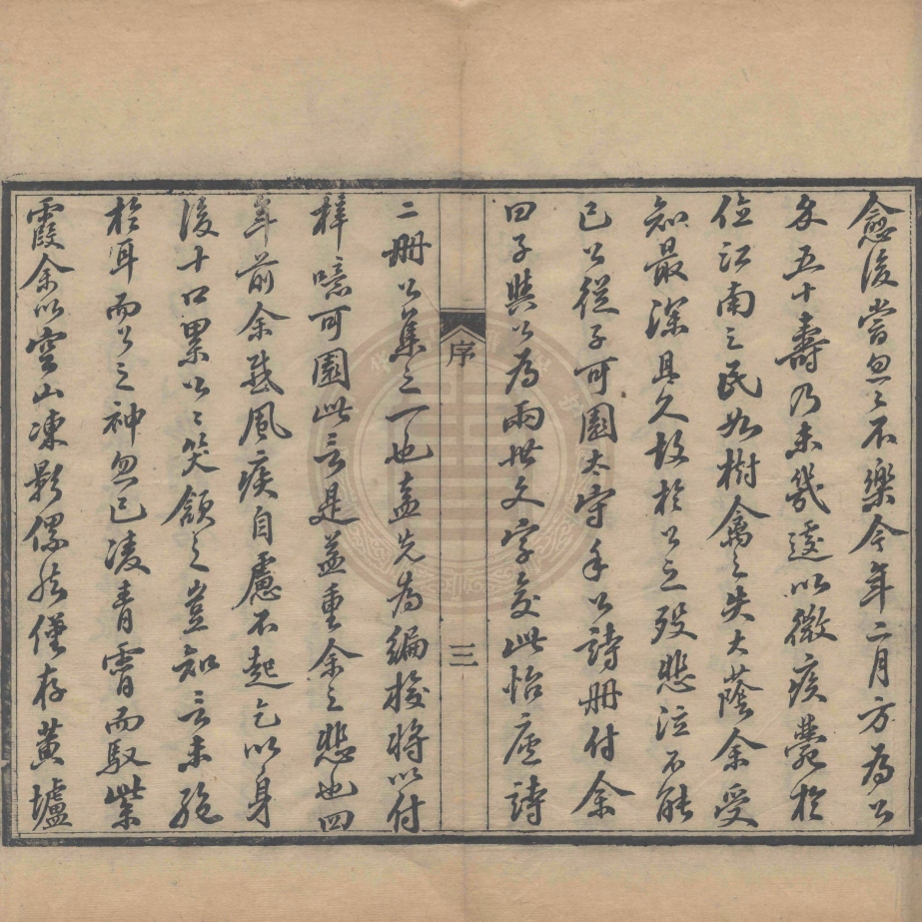 愈後嘗忽忽不樂今年二月方為公
年五十壽乃未幾遽以微疾薨於
位江南之民如樹禽之失大蔭余受
知最深且久故於公之歿悲泣不能
已公從子可園太守手公詩冊付余
曰子與公為兩世文字交此怡廬詩
序
三
二冊公集之一也盍先為編校將以付
梓噫可園此言是益重余之悲也四
年前余感風疾自慮不起乞以身
後十口累公公笑頷之豈知言未絕
於耳而公之神忽已凌青霄而馭紫
霞余以空山凍影傫然僅存黃壚